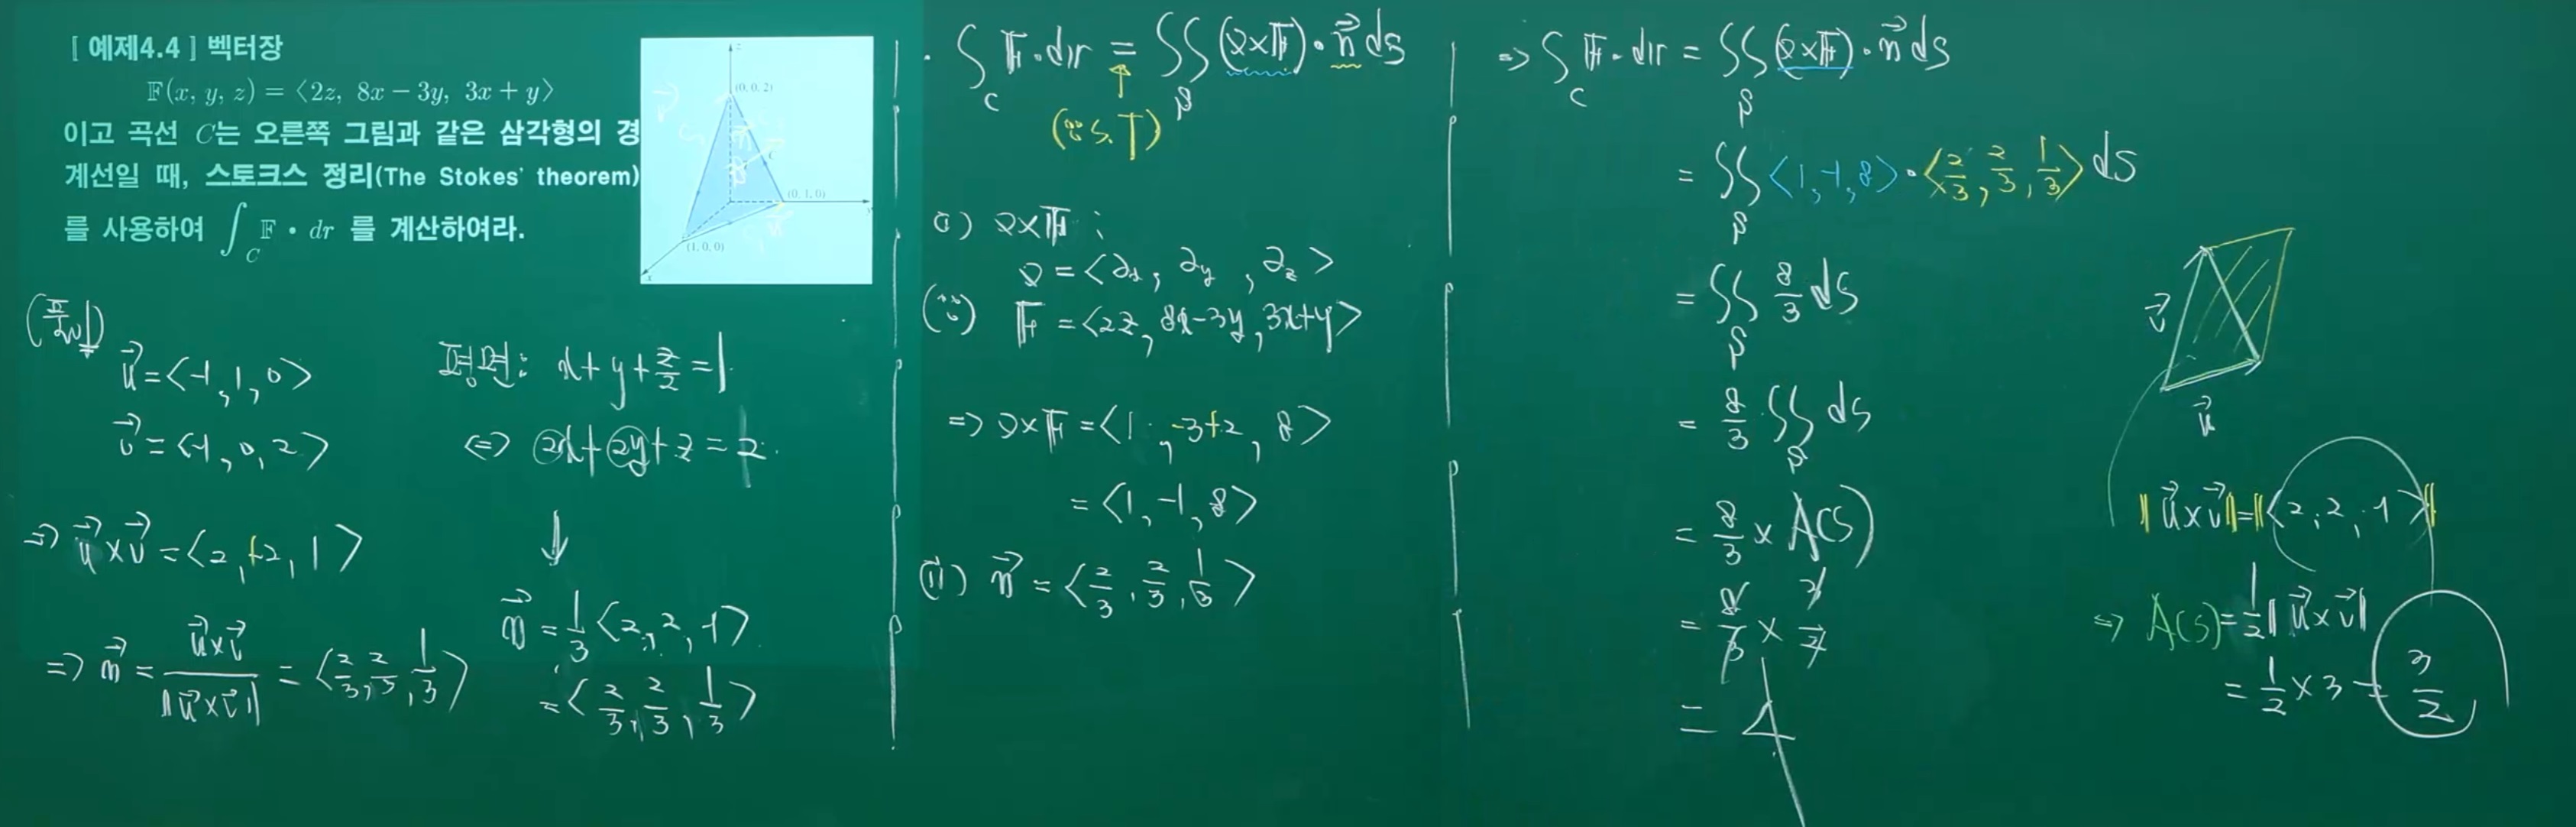 [ 예제4.4 ] 벡터장
𝔽(x, y, z) = ⟨2z, 8x − 3y, 3x + y⟩
이고 곡선 C는 오른쪽 그림과 같은 삼각형의 경
계선일 때, 스토크스 정리(The Stokes' theorem)
를 사용하여 ∫_C 𝔽 • dr 를 계산하여라.
z
(0, 0, 2)
C
(0, 1, 0)
y
(1, 0, 0)
x
(풀이)
u⃗ = <-1, 1, 0>
v⃗ = <-1, 0, 2>
⇒ u⃗×v⃗ = <2, +2, 1>
⇒ n⃗ = u⃗×v⃗ / ‖u⃗×v⃗‖ = <2/3, 2/3, 1/3>
평면: x+y+z/2 = 1
⇔ 2x+2y+z = 2
↓
n⃗ = 1/3 <2, 2, 1>
= <2/3, 2/3, 1/3>
· ∫_C 𝔽·dr = ∬_S (∇×𝔽)·n⃗ ds
(∵ S.T)
(i) ∇×𝔽 ;
∇ = <∂x, ∂y, ∂z>
𝔽 = <2z, 8x-3y, 3x+y>
⇒ ∇×𝔽 = <1, -3+2, 8>
= <1, -1, 8>
(ii) n⃗ = <2/3, 2/3, 1/3>
⇒ ∫_C 𝔽·dr = ∬_S (∇×𝔽)·n⃗ ds
= ∬_S <1, -1, 8>·<2/3, 2/3, 1/3> ds
= ∬_S 8/3 ds
= 8/3 ∬_S ds
= 8/3 × A(S)
= 8/3 × 3/2
= 4
v⃗
u⃗
‖u⃗×v⃗‖=‖<2, 2, 1>‖
⇒ A(S) = 1/2 ‖u⃗×v⃗‖
= 1/2 × 3 = 3/2